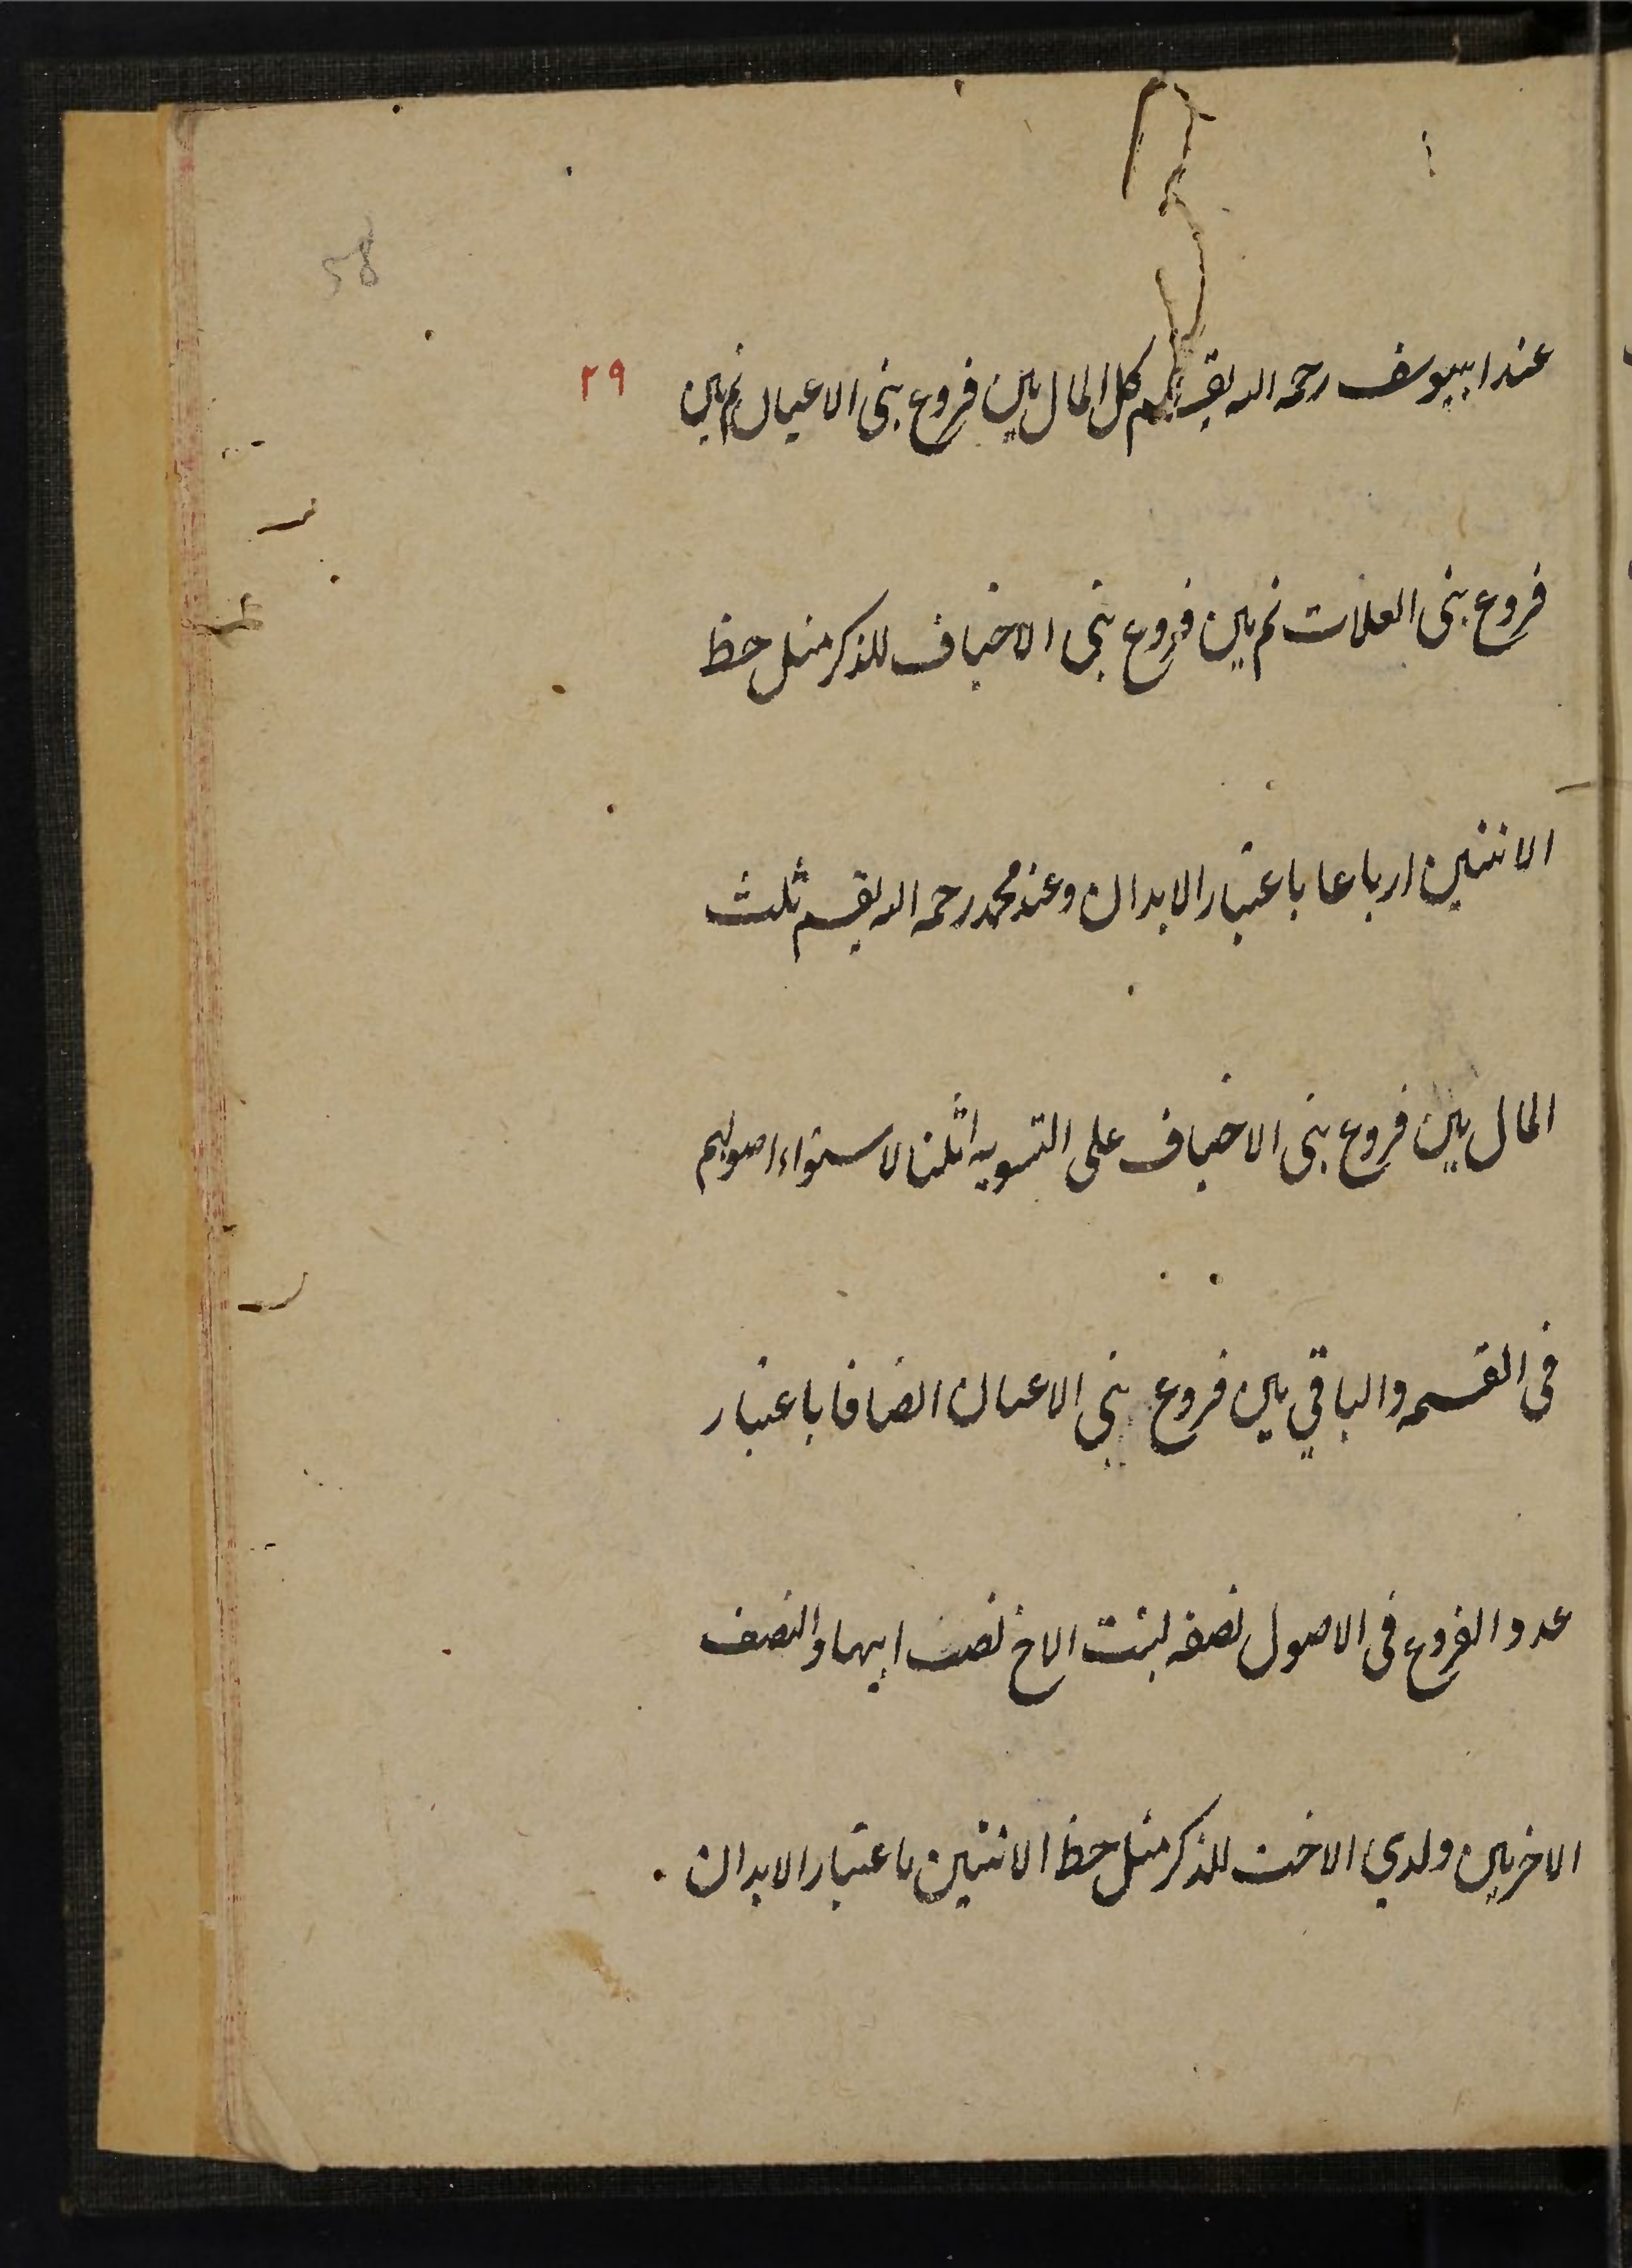 58
٢٩
عند ابييوسف رحمه الله يقسم كل المال بين فروع بنى الاعيان ثم بين
فروع بنى العلات ثم بين فروع بنى الاخياف للذكر مثل حظ
الانثيين ارباعا باعتبار الابدان وعند محمد رحمه الله يقسم ثلث
المال بين فروع بنى الاخياف على التسويه اثلثا لاستواء اصولهم
فى القسمه والباقي بين فروع بنى الاعيان انصافا باعتبار
عدد الفروع فى الاصول نصفه لبنت الاخ نصف ابيها والنصف
الاخر بين ولدي الاخت للذكر مثل حظ الانثيين باعتبار الابدان